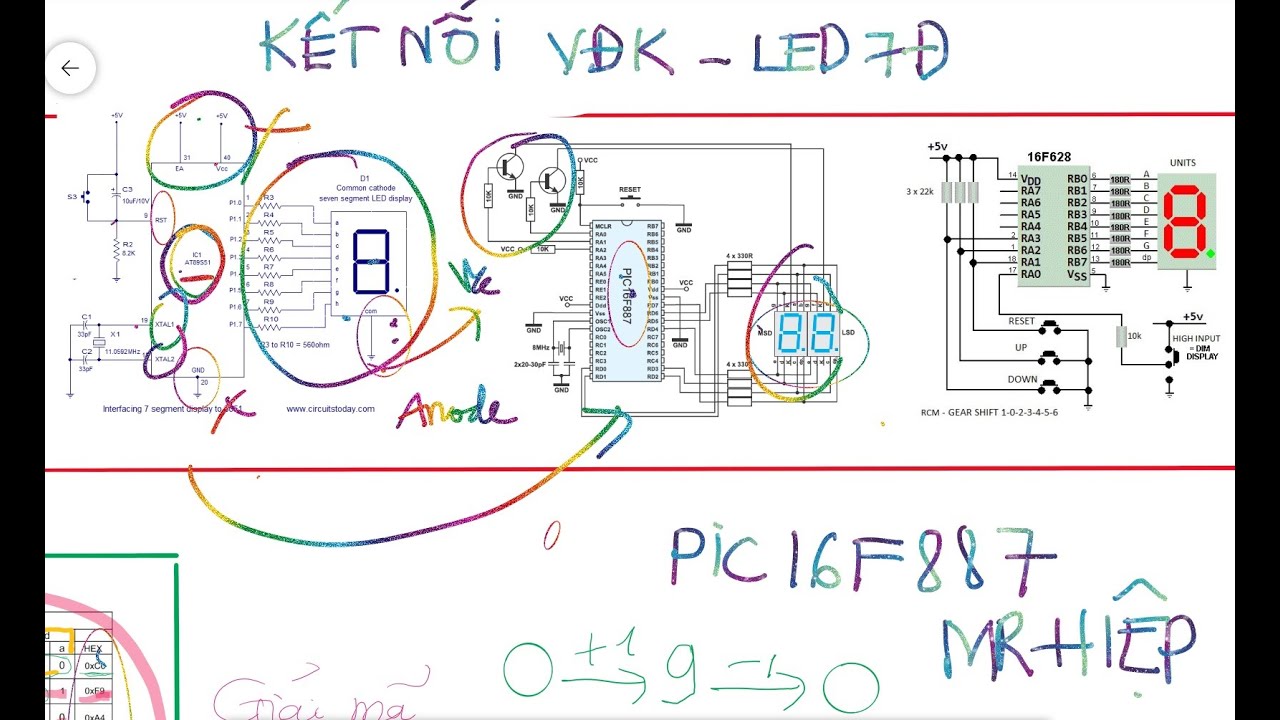 KẾT NỐI VĐK - LED 7Đ
+5V
+5V
+5V
31
40
EA
Vcc
S3
C3
10uF/10V
9
RST
R2
8.2K
IC1
AT89S51
C1
33pF
X1
11.0592MHz
C2
33pF
19
XTAL1
XTAL2
GND
20
P1.0
P1.1
P1.2
P1.6
P1.7
1
2
7
8
R3
R4
R5
R6
R7
R8
R9
R10
R3 to R10 = 560ohm
D1
Common cathode
seven segment LED display
a
b
c
d
e
f
g
h
com
Interfacing 7 segment display to
www.circuitstoday.com
Anode
10K
10K
10K
GND
GND
VCC
RESET
GND
VCC_O
10K
VCC
GND
8MHz
2x20-30pF
GND
MCLR
RA0
RA1
RA2
RA3
RA4
RA5
RE0
RE1
RE2
Vdd
Vss
OSC1
OSC2
RC0
RC1
RC2
RC3
RD0
RD1
PIC16F887
RB7
RB6
RB5
RB4
RB3
RB2
RB1
RB0
Vdd
Vss
RD7
RD6
RD5
RD4
RC7
RC6
RC5
RC4
RD3
RD2
VCC
GND
4 x 330R
4 x 330R
MSD
LSD
+5v
16F628
UNITS
3 x 22k
14
VDD
RA7
RA6
RA5
RA4
RA3
RA2
RA1
RA0
17
RB0
RB1
RB2
RB3
RB4
RB5
RB6
RB7
VSS
6
7
8
9
10
11
12
13
5
180R
180R
180R
A
B
C
D
E
F
G
dp
RESET
UP
DOWN
10k
+5v
HIGH INPUT
= DIM
DISPLAY
RCM - GEAR SHIFT 1-0-2-3-4-5-6
PIC16F887
MR HIỆP
0 +1 9 -1 0
Giải mã
d
a HEX
0 0xC0
1 0xF9
0 0xA4